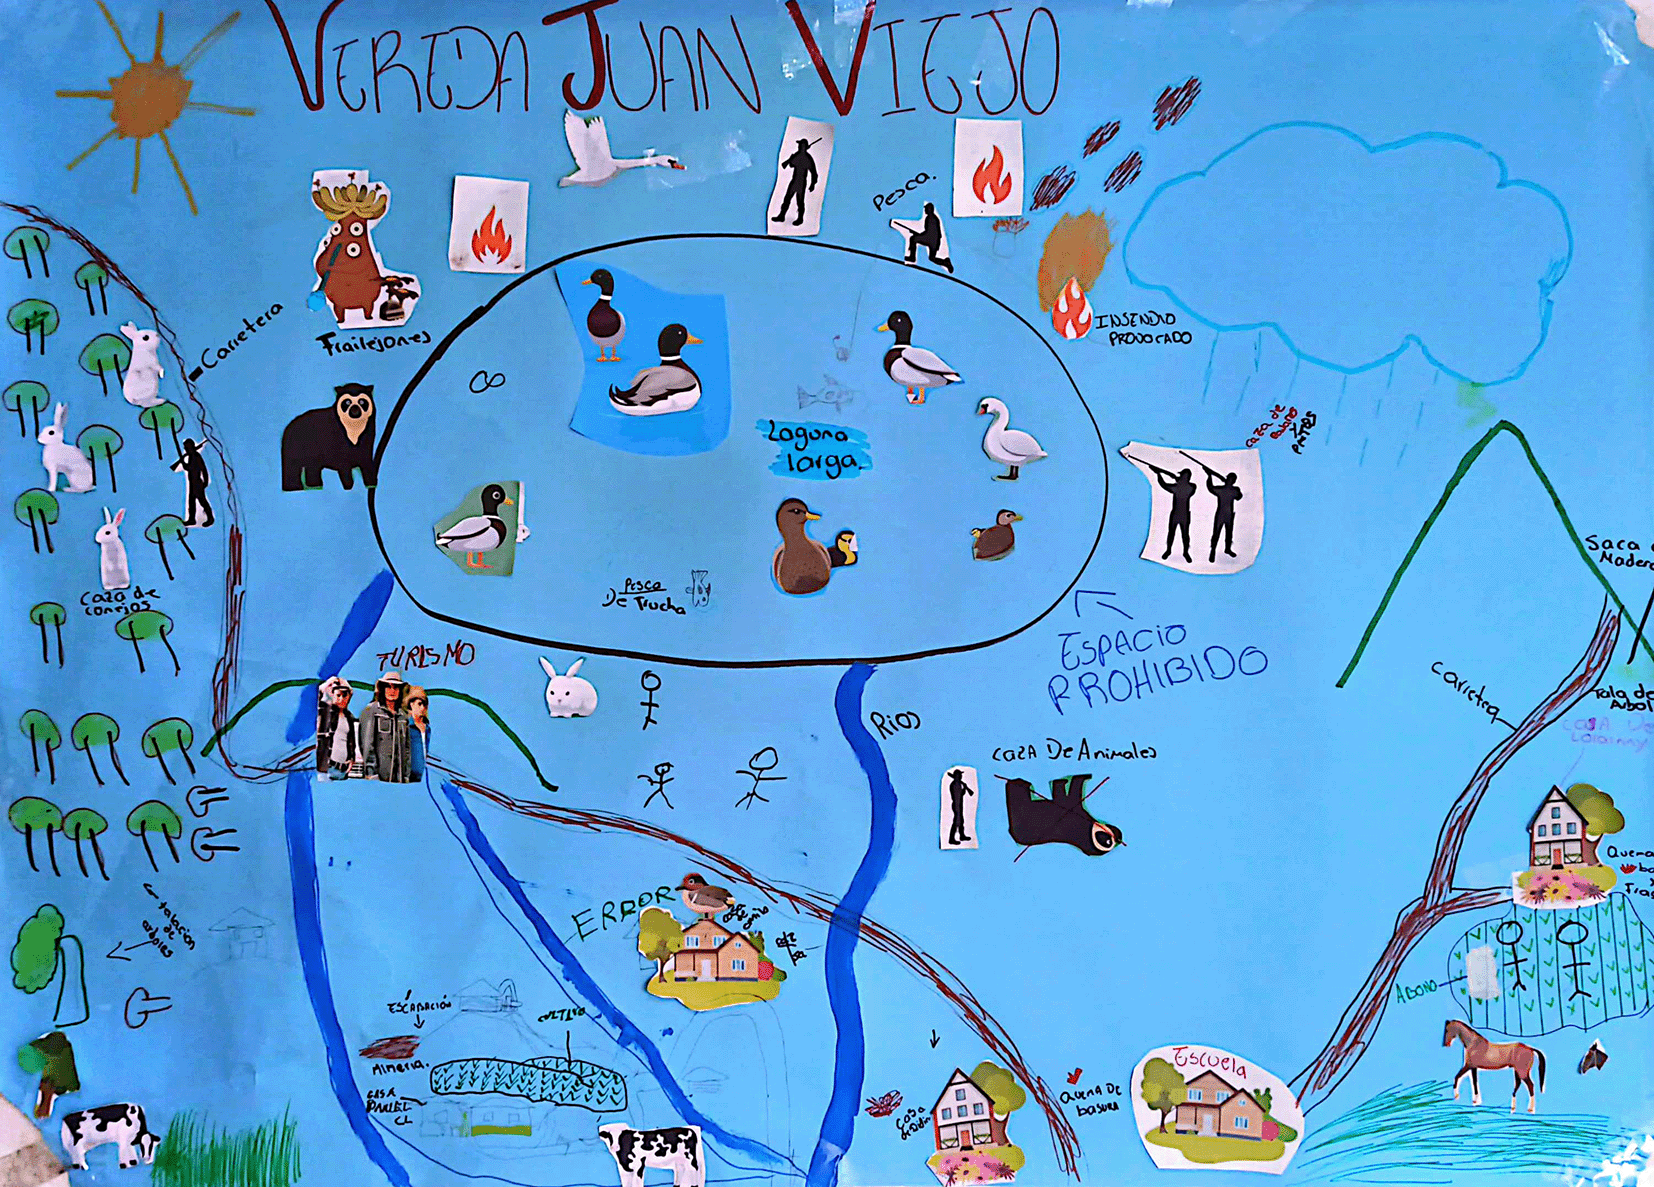 VEREDA JUAN VIEJO
Pesca.
Carretera
Frailejones
INSENDIO
PROVOCADO
caza de
Laguna
larga.
Saca
Madera
caza de
conejos
Pesca
De Trucha
ESPACIO
PROHIBIDO
TURISMO
Rios
Carretera
Tala de
Arbol
caza De Animales
Quema
ERROR
talacion
de
arboles
ESCABACIÓN
CULTIVO
Mineria.
CASA
DANIEL
Abono
Escuela
QUEMA DE
basura
Casa